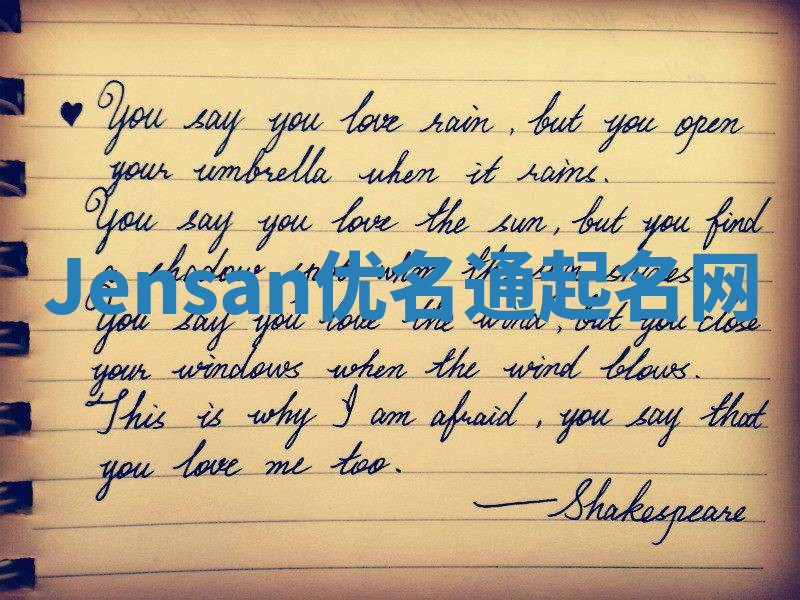 ♥ You say you love rain, but you open
your umbrella when it rains.
You say you love the sun, but you find
a shadow spot when the sun shines.
Jensan优名通起名网
You say you love the wind, but you close
your windows when the wind blows.
This is why I am afraid, you say that
you love me too.
—Shakespeare